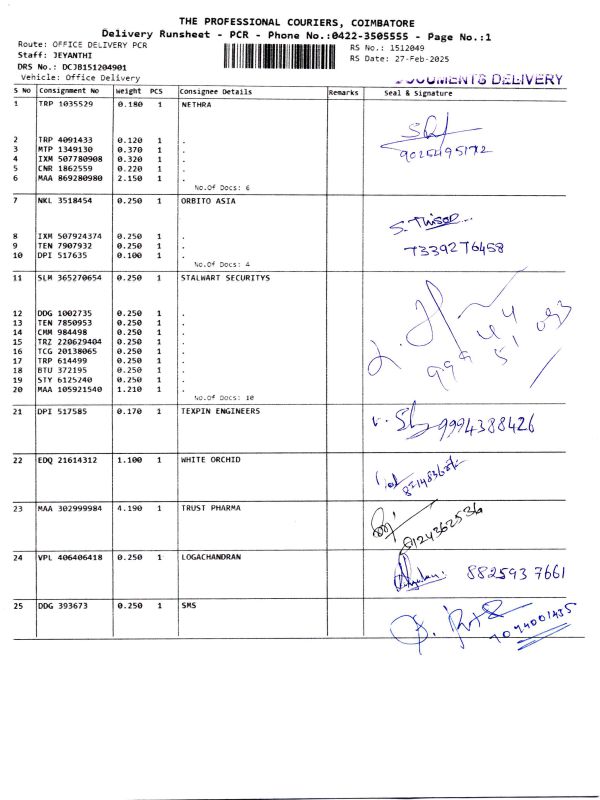 THE PROFESSIONAL COURIERS, COIMBATORE
Delivery Runsheet - PCR - Phone No.:0422-3505555 - Page No.:1
Route: OFFICE DELIVERY PCR
Staff: JEYANTHI
DRS No.: DCJB151204901
Vehicle: Office Delivery
RS No.: 1512049
RS Date: 27-Feb-2025
DOCUMENTS DELIVERY
S No Consignment No Weight PCS Consignee Details Remarks Seal & Signature
1 TRP 1035529 0.180 1 NETHRA
2 TRP 4091433 0.120 1 .
3 MTP 1349130 0.370 1 .
4 IXM 507780908 0.320 1 .
5 CNR 1862559 0.220 1 .
6 MAA 869280980 2.150 1 .
No.Of Docs: 6
7 NKL 3518454 0.250 1 ORBITO ASIA
8 IXM 507924374 0.250 1 .
9 TEN 7907932 0.250 1 .
7339276458
10 DPI 517635 0.100 1 .
No.Of Docs: 4
11 SLM 365270654 0.250 1 STALWART SECURITYS
12 DDG 1002735 0.250 1 .
13 TEN 7850953 0.250 1 .
14 CMM 984498 0.250 1 .
15 TRZ 220629404 0.250 1 .
16 TCG 20138065 0.250 1 .
17 TRP 614499 0.250 1 .
18 BTU 372195 0.250 1 .
19 STY 6125240 0.250 1 .
20 MAA 105921540 1.210 1 .
No.Of Docs: 10
21 DPI 517585 0.170 1 TEXPIN ENGINEERS
9994388426
22 EDQ 21614312 1.100 1 WHITE ORCHID
23 MAA 302999984 4.190 1 TRUST PHARMA
8124362536
24 VPL 406406418 0.250 1 LOGACHANDRAN
8825937661
25 DDG 393673 0.250 1 SMS